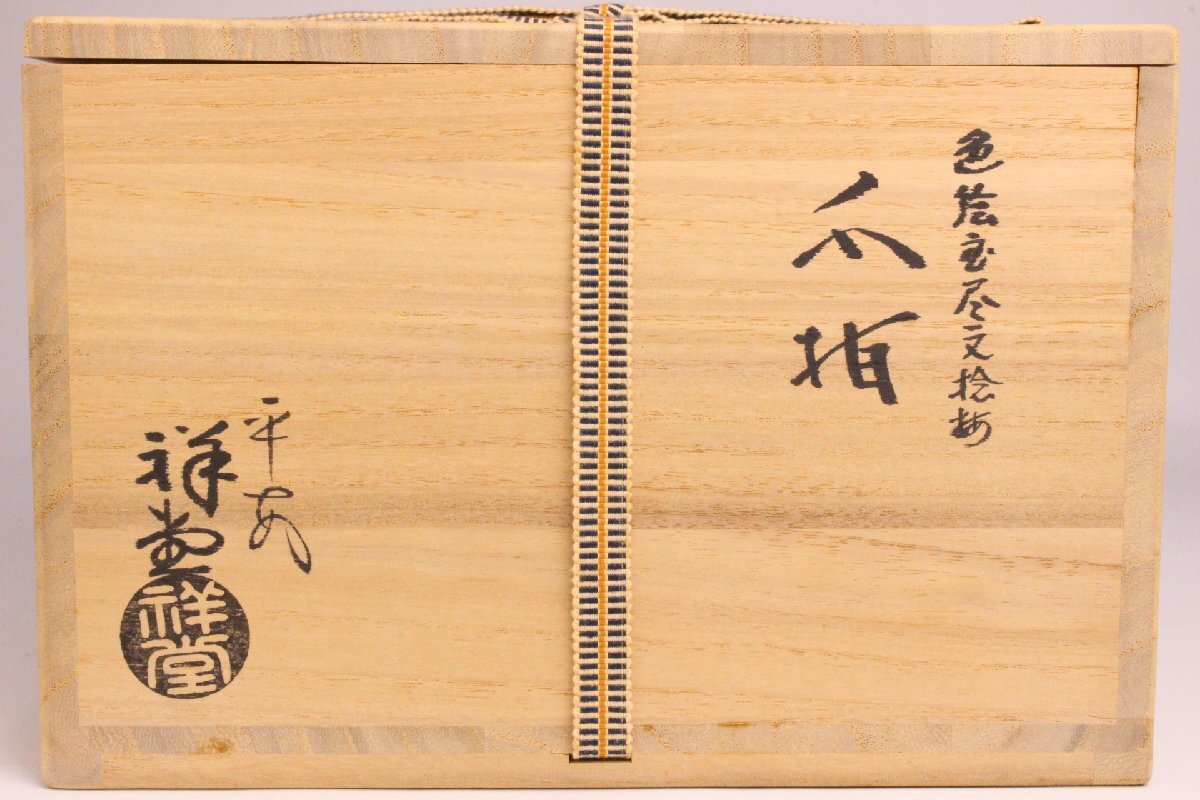 色絵宝尽文捻梅
水指
平安
祥堂
祥堂